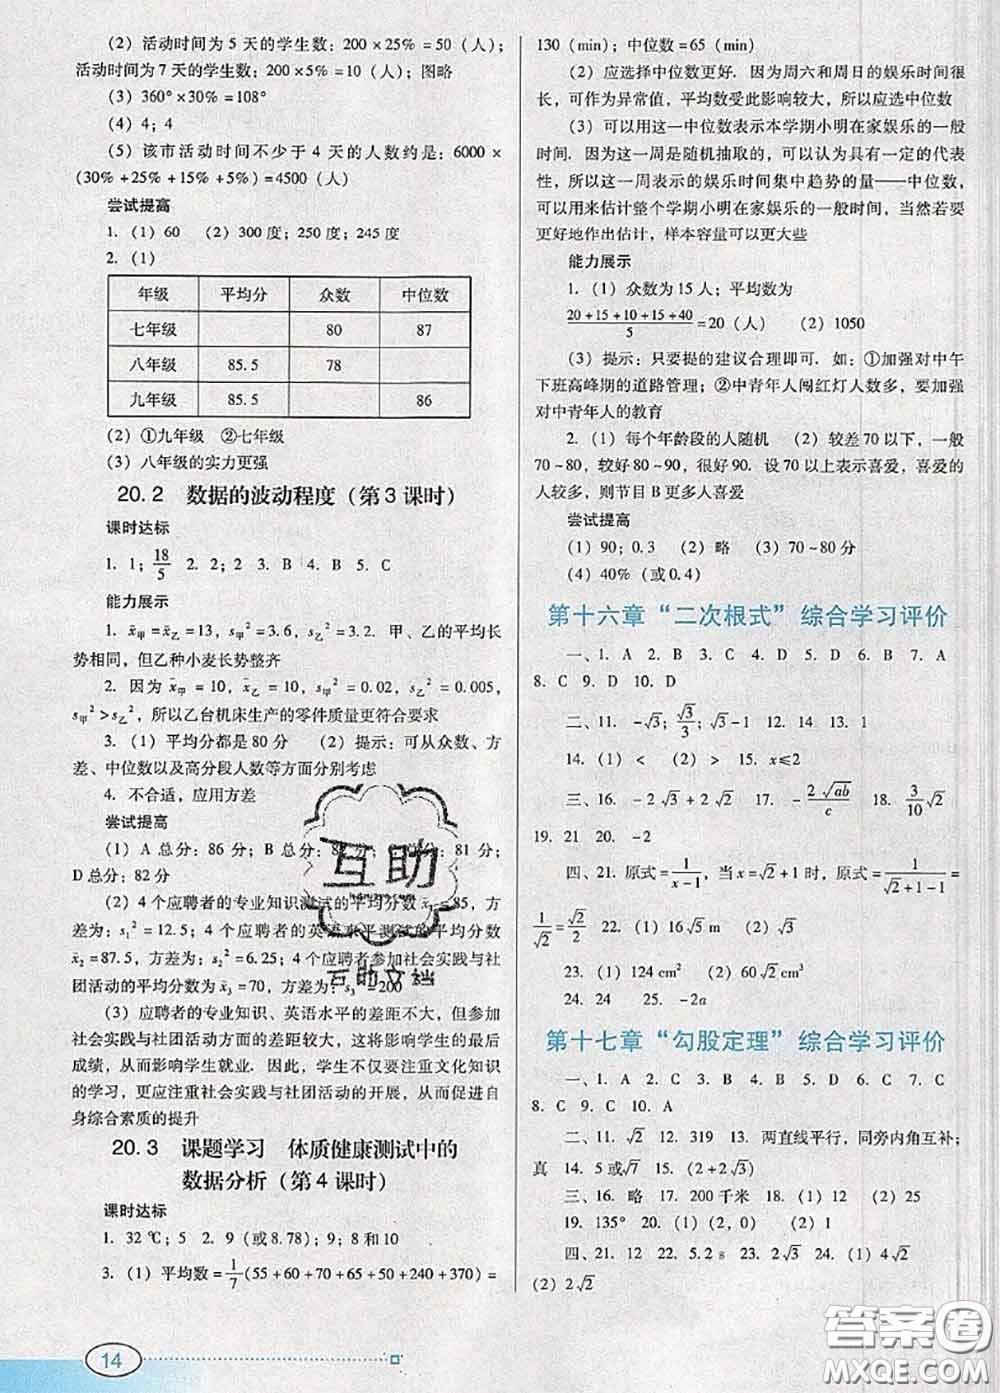 (2) 活动时间为 5 天的学生数：200×25%=50（人）；
活动时间为 7 天的学生数：200×5%=10（人）；图略
(3) 360°×30%=108°
(4) 4；4
(5) 该市活动时间不少于 4 天的人数约是：6000×
(30%+25%+15%+5%)=4500（人）
尝试提高
1. (1) 60 (2) 300 度；250 度；245 度
2. (1)
年级 平均分 众数 中位数
七年级 80 87
八年级 85.5 78
九年级 85.5 86
(2) ①九年级 ②七年级
(3) 八年级的实力更强
20.2 数据的波动程度（第 3 课时）
课时达标
1. 1；18/5 2. 2；2 3. B 4. B 5. C
能力展示
1. x̄甲=x̄乙=13，s甲²=3.6，s乙²=3.6. 甲、乙的平均长
势相同，但乙种小麦长势整齐
2. 因为 x̄甲=10，x̄乙=10，s甲²=0.02，s乙²=0.005，
s甲²>s乙²，所以乙台机床生产的零件质量更符合要求
3. (1) 平均分都是 80 分 (2) 提示：可从众数、方
差、中位数以及高分段人数等方面分别考虑
4. 不合适，应用方差
尝试提高
(1) A 总分：86 分；B 总分：分；总分：81 分；
D 总分：82 分
(2) 4 个应聘者的专业知识测试的平均分数 x̄₁=85，方
差为：s₁²=12.5；4 个应聘者的英语水平测试的平均分数
x̄₂=87.5，方差为：s₂²=6.25；4 个应聘者参加社会实践与社
团活动的平均分为 x̄₃=70，方差为：s₃²=200
(3) 应聘者的专业知识、英语水平的差距不大，但参加
社会实践与社团活动方面的差距较大，这将影响学生的最终
成绩，从而影响学生就业. 因此，学生不仅要注重文化知识
的学习，更应注重社会实践与社团活动的开展，从而促进学生
自身综合素质的提升
20.3 课题学习 体质健康测试中的
数据分析（第 4 课时）
课时达标
1. 32 ℃；5 2. 9（或 8.78）；9；8 和 10
3. (1) 平均数=1/7(55+60+70+65+50+240+370)=
14
130 (min)；中位数=65 (min)
(2) 应选择中位数更好. 因为周六和周日的娱乐时间很
长，可作为异常值，平均数受此影响较大，所以应选中位数
(3) 可以用这一中位数表示本学期小明在家娱乐的一般
时间. 因为这一周是随机抽取的，可以认为具有一定的代表
性，所以这一周表示的娱乐时间集中趋势的量——中位数，
可以用来估计整个学期小明在家娱乐的一般时间，当然若要
更好地作出估计，样本容量可以更大些
能力展示
1. (1) 众数为 15 人；平均数为
(20+15+10+15+40)/5=20（人） (2) 1050
(3) 提示：只要提的建议合理即可. 如：①加强对中午
下班高峰期的道路管理；②中青年人闯红灯人数多，要加强
对中青年人的教育
2. (1) 每个年龄段的人随机 (2) 较差 70 以下，一般
70~80，较好 80~90，很好 90. 设 70 以上表示喜爱，喜爱的
人较多，则节目 B 更多人喜爱
尝试提高
(1) 90；0.3 (2) 略 (3) 70~80 分
(4) 40%（或 0.4）
第十六章“二次根式”综合学习评价
一、1. A 2. B 3. C 4. D 5. D 6. B 7. A
8. C 9. D 10. D
二、11. -√3；√3/3；√3-1 12. 24 13. 1
14. (1) < (2) > 15. x≤2
三、16. -2√3+2√2 17. -2√ab/c 18. 3/10√2
19. 21 20. -2
四、21. 原式=1/(x-1)，当 x=√2+1 时，原式=1/(√2+1-1)=
1/√2=√2/2 22. (1) 16√5 m (2) √5
23. (1) 124 cm² (2) 60√2 cm³
24. 24 25. -2a
第十七章“勾股定理”综合学习评价
一、1. A 2. C 3. B 4. B 5. A 6. C 7. C
8. C 9. C 10. A
二、11. √2 12. 319 13. 两直线平行，同旁内角互补；
真 14. 5 或√7 15. (2+2√3)
三、16. 略 17. 200 千米 18. (1) 12 (2) 25
19. 135° 20. (1) (2，0) (2) 2
四、21. 12 22. 5.2 s 23. 2√3 24. (1) 4√2
(2) 2√2
互助
互助文档
答案圈
MXQE.COM